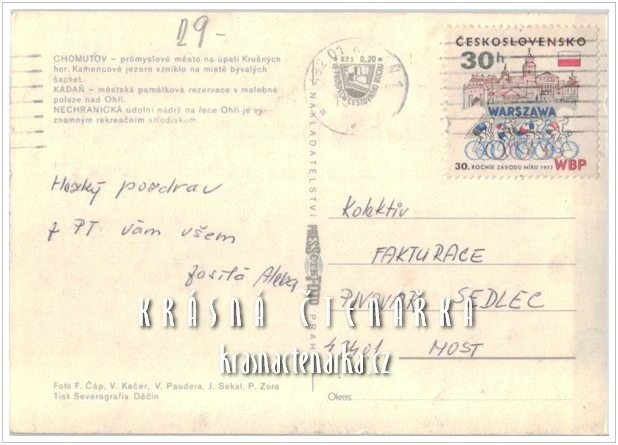 29-
CHOMUTOV – průmyslové město na úpatí Krušných
hor. Kamencové jezero vzniklo na místě bývalých
šachet.
KADAŇ – městská památková rezervace v malebné
poloze nad Ohří.
NECHRANICKÁ údolní nádrž na řece Ohři je vý-
znamným rekreačním střediskem.
Hezký pozdrav
z PT vám všem
zasílá
Foto F. Čáp, V. Kačer, V. Paudera, J. Sekal, P. Zora
Tisk Severografia Děčín
NAKLADATELSTVÍ PRESSFOTO PRAHA
Kčs 0,20
ČESKOSLOVENSKO
30h
WARSZAWA
30. ROČNÍK ZÁVODU MÍRU 1977 WBP
Kolektiv
FAKTURACE
PIVOVAR SEDLEC
43401 MOST
Okres:
KRÁSNÁ ČTENÁŘKA
krasnactenarka.cz